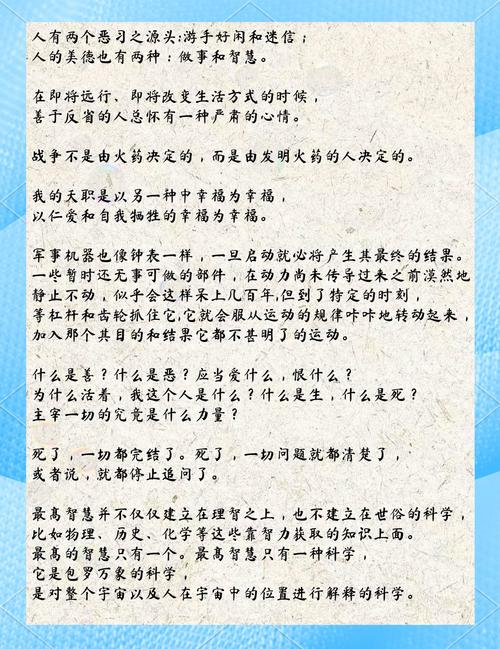 人有两个恶习之源头:游手好闲和迷信；
人的美德也有两种：做事和智慧。
在即将远行、即将改变生活方式的时候，
善于反省的人总怀有一种严肃的心情。
战争不是由火药决定的，而是由发明火药的人决定的。
我的天职是以另一种中幸福为幸福，
以仁爱和自我牺牲的幸福为幸福。
军事机器也像钟表一样，一旦启动就必将产生其最终的结果。
一些暂时还无事可做的部件，在动力尚未传导过来之前漠然地
静止不动，似乎会这样呆上几百年,但到了特定的时刻，
等杠杆和齿轮抓住它,它就会服从运动的规律咔咔地转动起来，
加入那个其目的和结果它都不甚明了的运动。
什么是善？什么是恶？应当爱什么，恨什么？
为什么活着，我这个人是什么？什么是生，什么是死？
主宰一切的究竟是什么力量？
死了，一切都完结了。死了，一切问题就都清楚了，
或者说，就都停止追问了。
最高智慧并不仅仅建立在理智之上，也不建立在世俗的科学，
比如物理、历史、化学等这些靠智力获取的知识上面。
最高的智慧只有一个。最高智慧只有一种科学，
它是包罗万象的科学，
是对整个宇宙以及人在宇宙中的位置进行解释的科学。